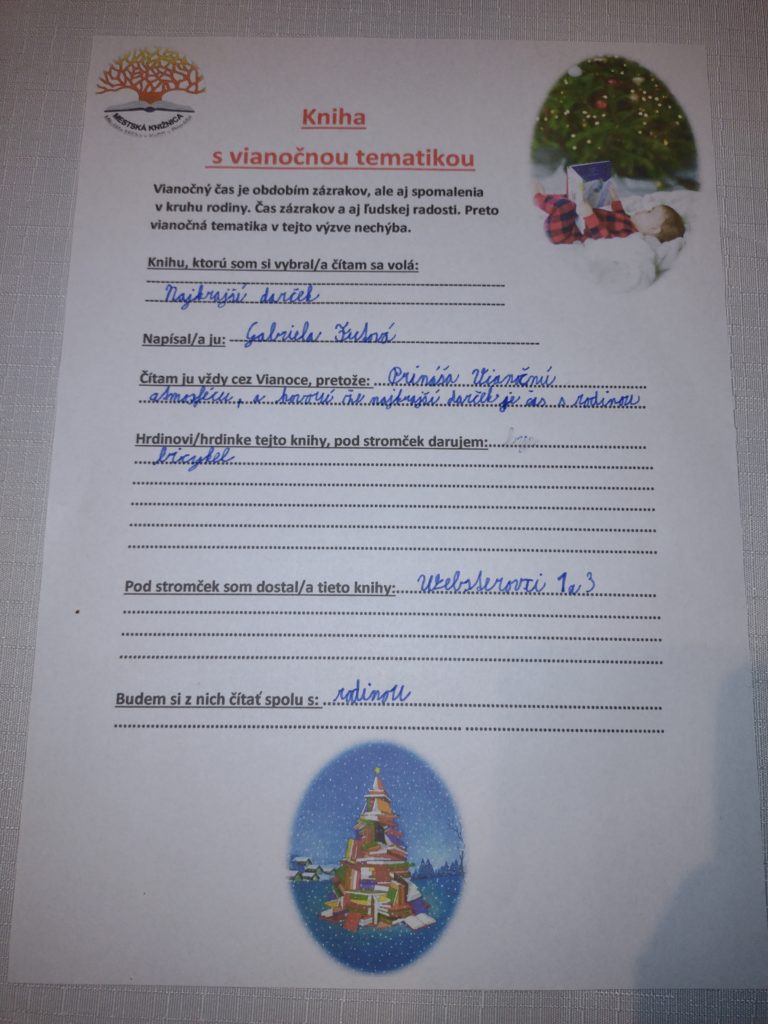 MESTSKÁ KNIŽNICA
Kniha
s vianočnou tematikou
Vianočný čas je obdobím zázrakov, ale aj spomalenia
v kruhu rodiny. Čas zázrakov a aj ľudskej radosti. Preto
vianočná tematika v tejto výzve nechýba.
Knihu, ktorú som si vybral/a čítam sa volá:
Najkrajší darček
Napísal/a ju: Gabriela Futová
Čítam ju vždy cez Vianoce, pretože: Prináša Vianočnú
atmosféru, a hovorí že najkrajší darček je čas s rodinou
Hrdinovi/hrdinke tejto knihy, pod stromček darujem:
bicykel
Pod stromček som dostal/a tieto knihy: Websterovci 1 a 3
Budem si z nich čítať spolu s: rodinou